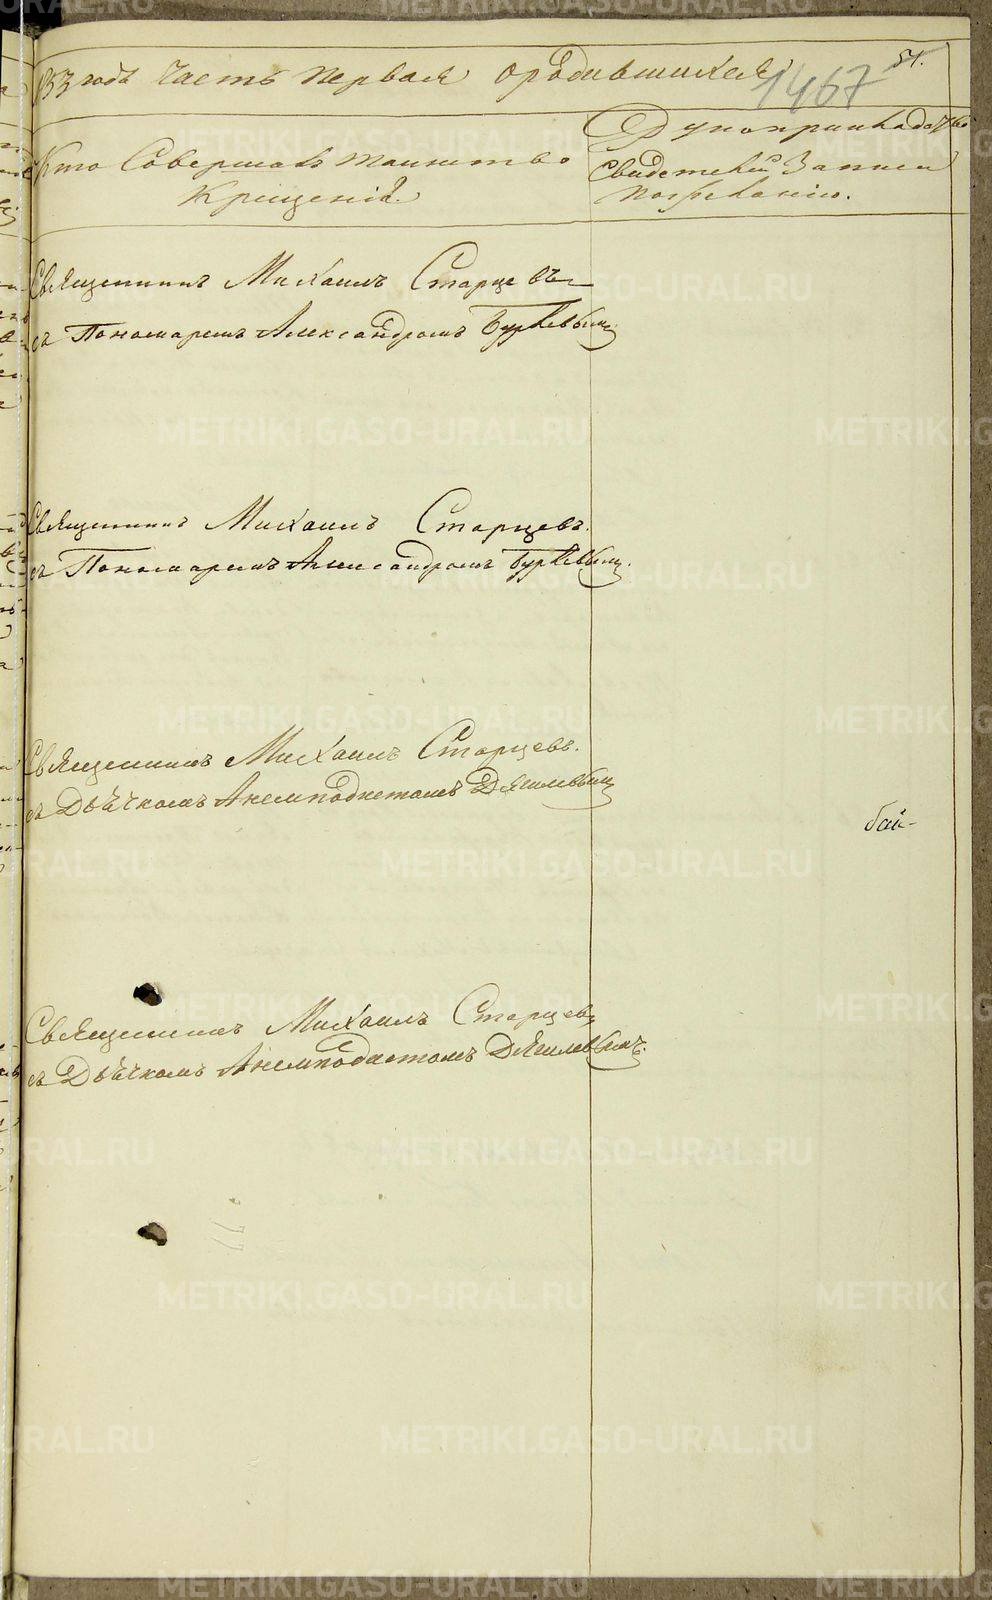 54.
1467
853 годъ Часть Первая ородившихся
Кто Совершалъ таинство
Крещенія.
Рукоприкладство
Свидетелей Записи
по желанію.
Священникъ Михаилъ Старцевъ
съ Пономаремъ Александромъ Бурлевымъ
Священникъ Михаилъ Старцевъ.
съ Пономаремъ Александромъ Бурлевымъ.
Священникъ Михаилъ Старцевъ.
съ Дьячкомъ Анемподистомъ Дягилевымъ
бай-
Священникъ Михаилъ Старцевъ
съ Дьячкомъ Анемподистомъ Дягилевымъ.
METRIKI.GASO-URAL.RU